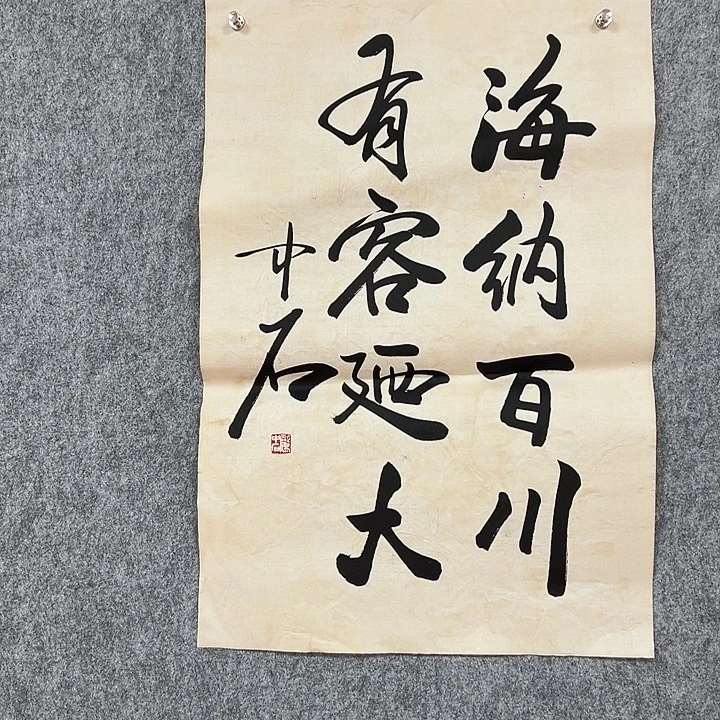 海纳百川
有容廼大
中石